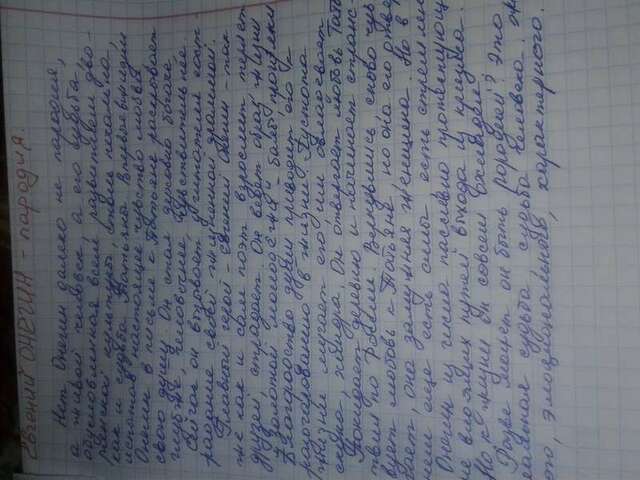 Евгений ОНЕГИН - пародия.
Нет Онегин далеко не пародия,
а живой человек, а его судьба,
обусловленная всем развитием дво-
рянской культуры, столь печальна,
как и судьба Татьяны. Впервые в жизни
испытав настоящее чувство любви
Онегин в письме к Татьяне раскрывает
свою душу. Он стал духовно богаче,
глубже, человечнее, чувствительнее.
Сейчас он вызывает у читателя сост-
радание своей жизненной драммой.
Главный герой - Евгений Онегин - так
же как и сам поэт взрослит, теряет
друзей, страдает. Он ведёт образ жизни
"золотой молодёжи" - балы, прогулки
Благородство души приводит его к
разочарованию в жизни. Пустота
жизни мучает его, им овладевает
скука, хандра. Он отвергает любовь Тать
Покидает деревню и начинает странс-
твия по России. Вернувшись, снова чув
вует любовь к Татьяне, но она его отвер
гает, она замужняя женщина. Но в
нем ещё есть силы, есть стремлен
Онегин из числа пассивно протестующ
не видящих путей выхода из кризиса.
Но к жизни он совсем охладел.
Разве может он быть породией? Это
еальная судьба, судьба человека.
ого, эмоционального, характерного.